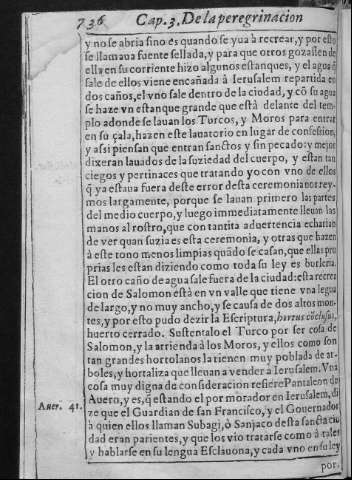 736 Cap. 3. De la peregrinacion
y no se abria sino es quando se yua à recrear, y por esto
se llamaua fuente sellada, y para que otros gozassen de
ella en su corriente hizo algunos estanques, y el agua q̃
sale de ellos viene encañada à Ierusalem repartida en
dos caños, el vno sale dentro de la ciudad, y cõ su agua
se haze vn estanque grande que està delante del tem-
plo adonde se lauan los Turcos, y Moros para entrar
en su çala, hazen este lauatorio en lugar de confession,
y assi piensan que entran sanctos y sin pecado: y mejor
dixeran lauados de la suziedad del cuerpo, y estan tan
ciegos y pertinaces que tratando yo con vno de ellos
q̃ ya estaua fuera deste error desta ceremonia nos rey-
mos largamente, porque se lauan primero las partes
del medio cuerpo, y luego immediatamente lleuan las
manos al rostro, que con tantita aduertencia echarian
de ver quan suzia es esta ceremonia, y otras que hazen
à este tono menos limpias quãdo se casan, que ellas pro
prias les estan diziendo como toda su ley es burleria.
El otro caño de agua sale fuera de la ciudad: esta recrea
cion de Salomon està en vn valle que tiene vna legua
de largo, y no muy ancho, y se causa de dos altos mon-
tes, y por esto pudo dezir la Escriptura, hortus cõclusus,
huerto cerrado. Sustentalo el Turco por ser cosa de
Salomon, y la arrienda à los Moros, y ellos como son
tan grandes hortolanos la tienen muy poblada de ar-
boles, y hortaliza que lleuan a vender à Ierusalem. Vna
cosa muy digna de consideracion refiere Pantaleon de
Auer. 41. Auero, y es, q̃ estando el por morador en Ierusalem, di
ze que el Guardian de san Francisco, y el Gouernador
à quien ellos llaman Subagi, ò Sanjaco desta sancta ciu
dad eran parientes, y que los vio tratarse como à tales
y hablarse en su lengua Esclauona, y cada vno en su ley
por.